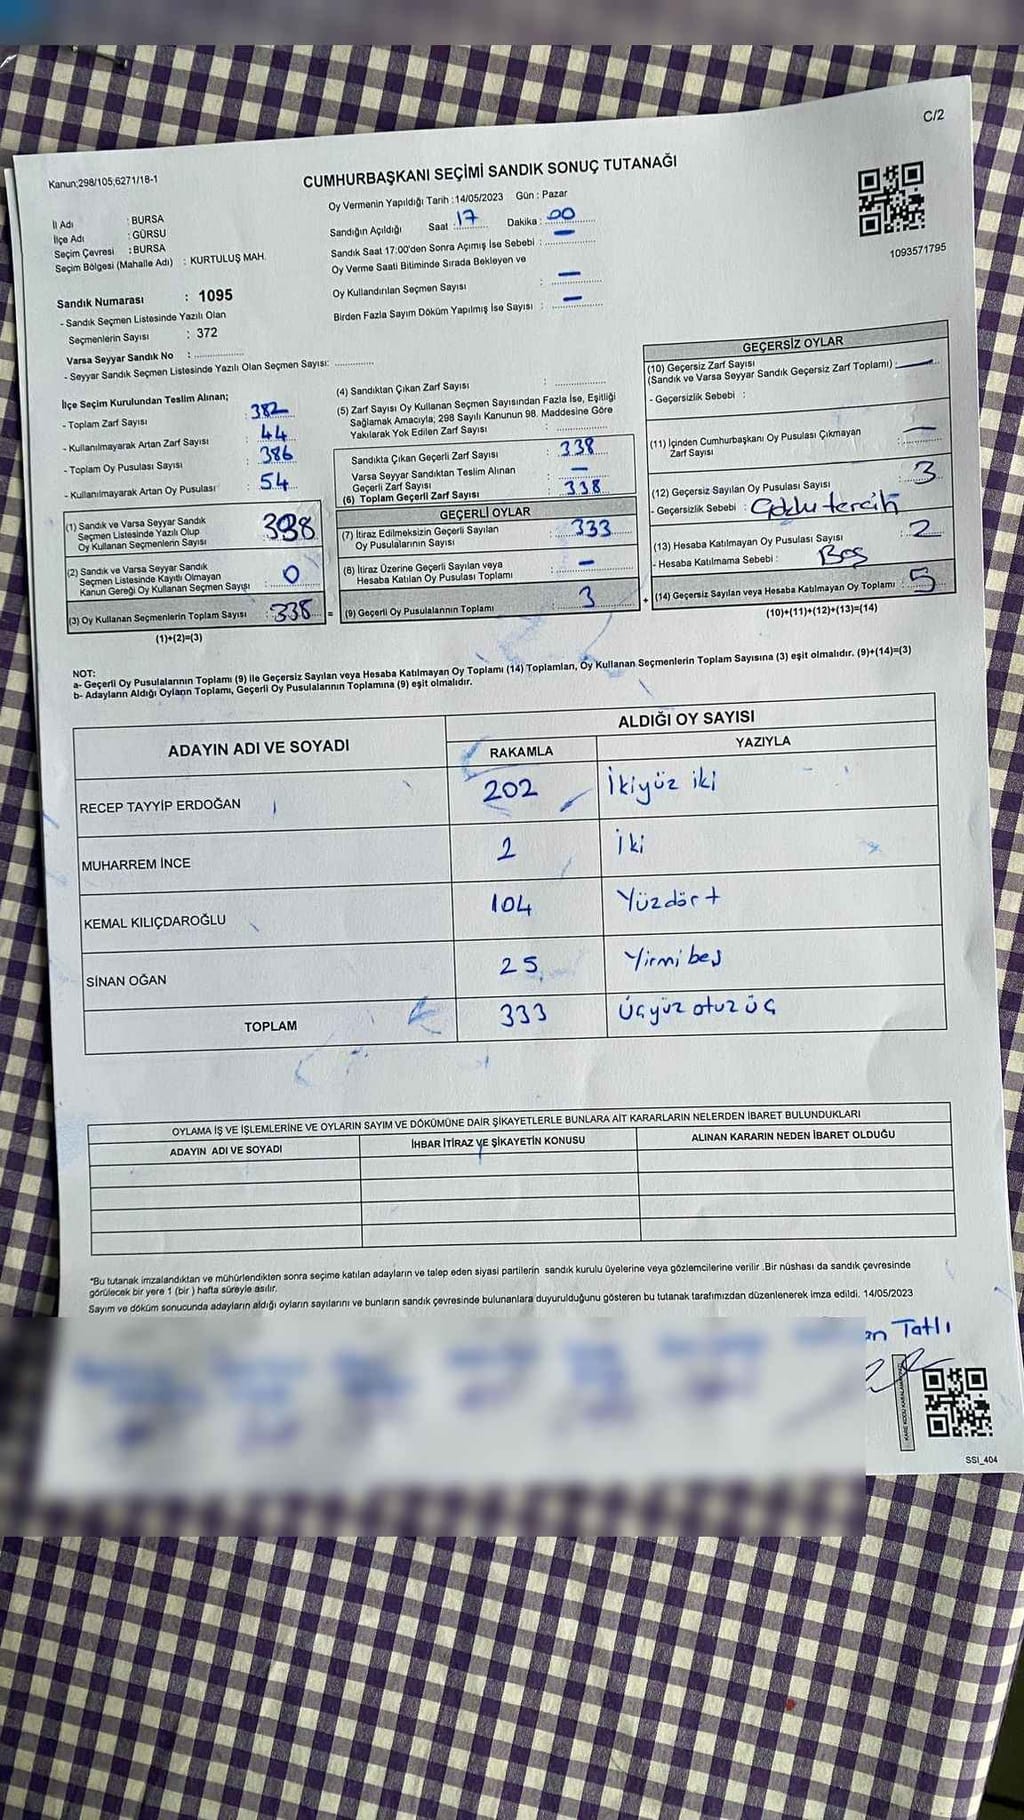 C/2
Kanun;298/105,6271/18-1
CUMHURBAŞKANI SEÇİMİ SANDIK SONUÇ TUTANAĞI
Oy Vermenin Yapıldığı Tarih :14/05/2023 Gün : Pazar
İl Adı : BURSA
İlçe Adı : GÜRSU
Seçim Çevresi : BURSA
Seçim Bölgesi (Mahalle Adı) : KURTULUŞ MAH.
Sandık Numarası : 1095
- Sandık Seçmen Listesinde Yazılı Olan
Seçmenlerin Sayısı : 372
Varsa Seyyar Sandık No : ................
- Seyyar Sandık Seçmen Listesinde Yazılı Olan Seçmen Sayısı: ............
Sandığın Açıldığı Saat 17 Dakika : 00
Sandık Saat 17:00'den Sonra Açımış İse Sebebi : —
Oy Verme Saati Bitiminde Sırada Bekleyen ve
Oy Kullandırılan Seçmen Sayısı : —
Birden Fazla Sayım Döküm Yapılmış İse Sayısı : —
1093571795
İlçe Seçim Kurulundan Teslim Alınan;
- Toplam Zarf Sayısı : 382
- Kullanılmayarak Artan Zarf Sayısı : 44
- Toplam Oy Pusulası Sayısı : 386
- Kullanılmayarak Artan Oy Pusulası : 54
(1) Sandık ve Varsa Seyyar Sandık
Seçmen Listesinde Yazılı Olup
Oy Kullanan Seçmenlerin Sayısı 338
(2) Sandık ve Varsa Seyyar Sandık
Seçmen Listesinde Kayıtlı Olmayan
Kanun Gereği Oy Kullanan Seçmen Sayısı : 0
(3) Oy Kullanan Seçmenlerin Toplam Sayısı : 338 =
(1)+(2)=(3)
(4) Sandıktan Çıkan Zarf Sayısı : ............
(5) Zarf Sayısı Oy Kullanan Seçmen Sayısından Fazla İse, Eşitliği
Sağlamak Amacıyla; 298 Sayılı Kanunun 98. Maddesine Göre
Yakılarak Yok Edilen Zarf Sayısı : ............
Sandıkta Çıkan Geçerli Zarf Sayısı : 338
Varsa Seyyar Sandıktan Teslim Alınan
Geçerli Zarf Sayısı : —
(6) Toplam Geçerli Zarf Sayısı : 338
GEÇERLİ OYLAR
(7) İtiraz Edilmeksizin Geçerli Sayılan
Oy Pusulalarının Sayısı : 333
(8) İtiraz Üzerine Geçerli Sayılan veya
Hesaba Katılan Oy Pusulası Toplamı : —
(9) Geçerli Oy Pusulalarının Toplamı : 3 +
GEÇERSİZ OYLAR
(10) Geçersiz Zarf Sayısı
(Sandık ve Varsa Seyyar Sandık Geçersiz Zarf Toplamı) : —
- Geçersizlik Sebebi :
(11) İçinden Cumhurbaşkanı Oy Pusulası Çıkmayan
Zarf Sayısı : —
(12) Geçersiz Sayılan Oy Pusulası Sayısı : 3
- Geçersizlik Sebebi : Çoklu tercih
(13) Hesaba Katılmayan Oy Pusulası Sayısı : 2
- Hesaba Katılmama Sebebi : Boş
(14) Geçersiz Sayılan veya Hesaba Katılmayan Oy Toplamı : 5
(10)+(11)+(12)+(13)=(14)
NOT:
a- Geçerli Oy Pusulalarının Toplamı (9) ile Geçersiz Sayılan veya Hesaba Katılmayan Oy Toplamı (14) Toplamları, Oy Kullanan Seçmenlerin Toplam Sayısına (3) eşit olmalıdır. (9)+(14)=(3)
b- Adayların Aldığı Oyların Toplamı, Geçerli Oy Pusulalarının Toplamına (9) eşit olmalıdır.
ADAYIN ADI VE SOYADI ALDIĞI OY SAYISI
RAKAMLA YAZIYLA
RECEP TAYYİP ERDOĞAN 202 İkiyüz iki
MUHARREM İNCE 2 İki
KEMAL KILIÇDAROĞLU 104 Yüzdört
SİNAN OĞAN 25 Yirmibeş
TOPLAM 333 Üçyüz otuz üç
OYLAMA İŞ VE İŞLEMLERİNE VE OYLARIN SAYIM VE DÖKÜMÜNE DAİR ŞİKAYETLERLE BUNLARA AİT KARARLARIN NELERDEN İBARET BULUNDUKLARI
ADAYIN ADI VE SOYADI İHBAR İTİRAZ VE ŞİKAYETİN KONUSU ALINAN KARARIN NEDEN İBARET OLDUĞU
*Bu tutanak imzalandıktan ve mühürlendikten sonra seçime katılan adayların ve talep eden siyasi partilerin sandık kurulu üyelerine veya gözlemcilerine verilir .Bir nüshası da sandık çevresinde
görülecek bir yere 1 (bir ) hafta süreyle asılır.
Sayım ve döküm sonucunda adayların aldığı oyların sayılarını ve bunların sandık çevresinde bulunanlara duyurulduğunu gösteren bu tutanak tarafımızdan düzenlenerek imza edildi. 14/05/2023
an Tatlı
SSI_404